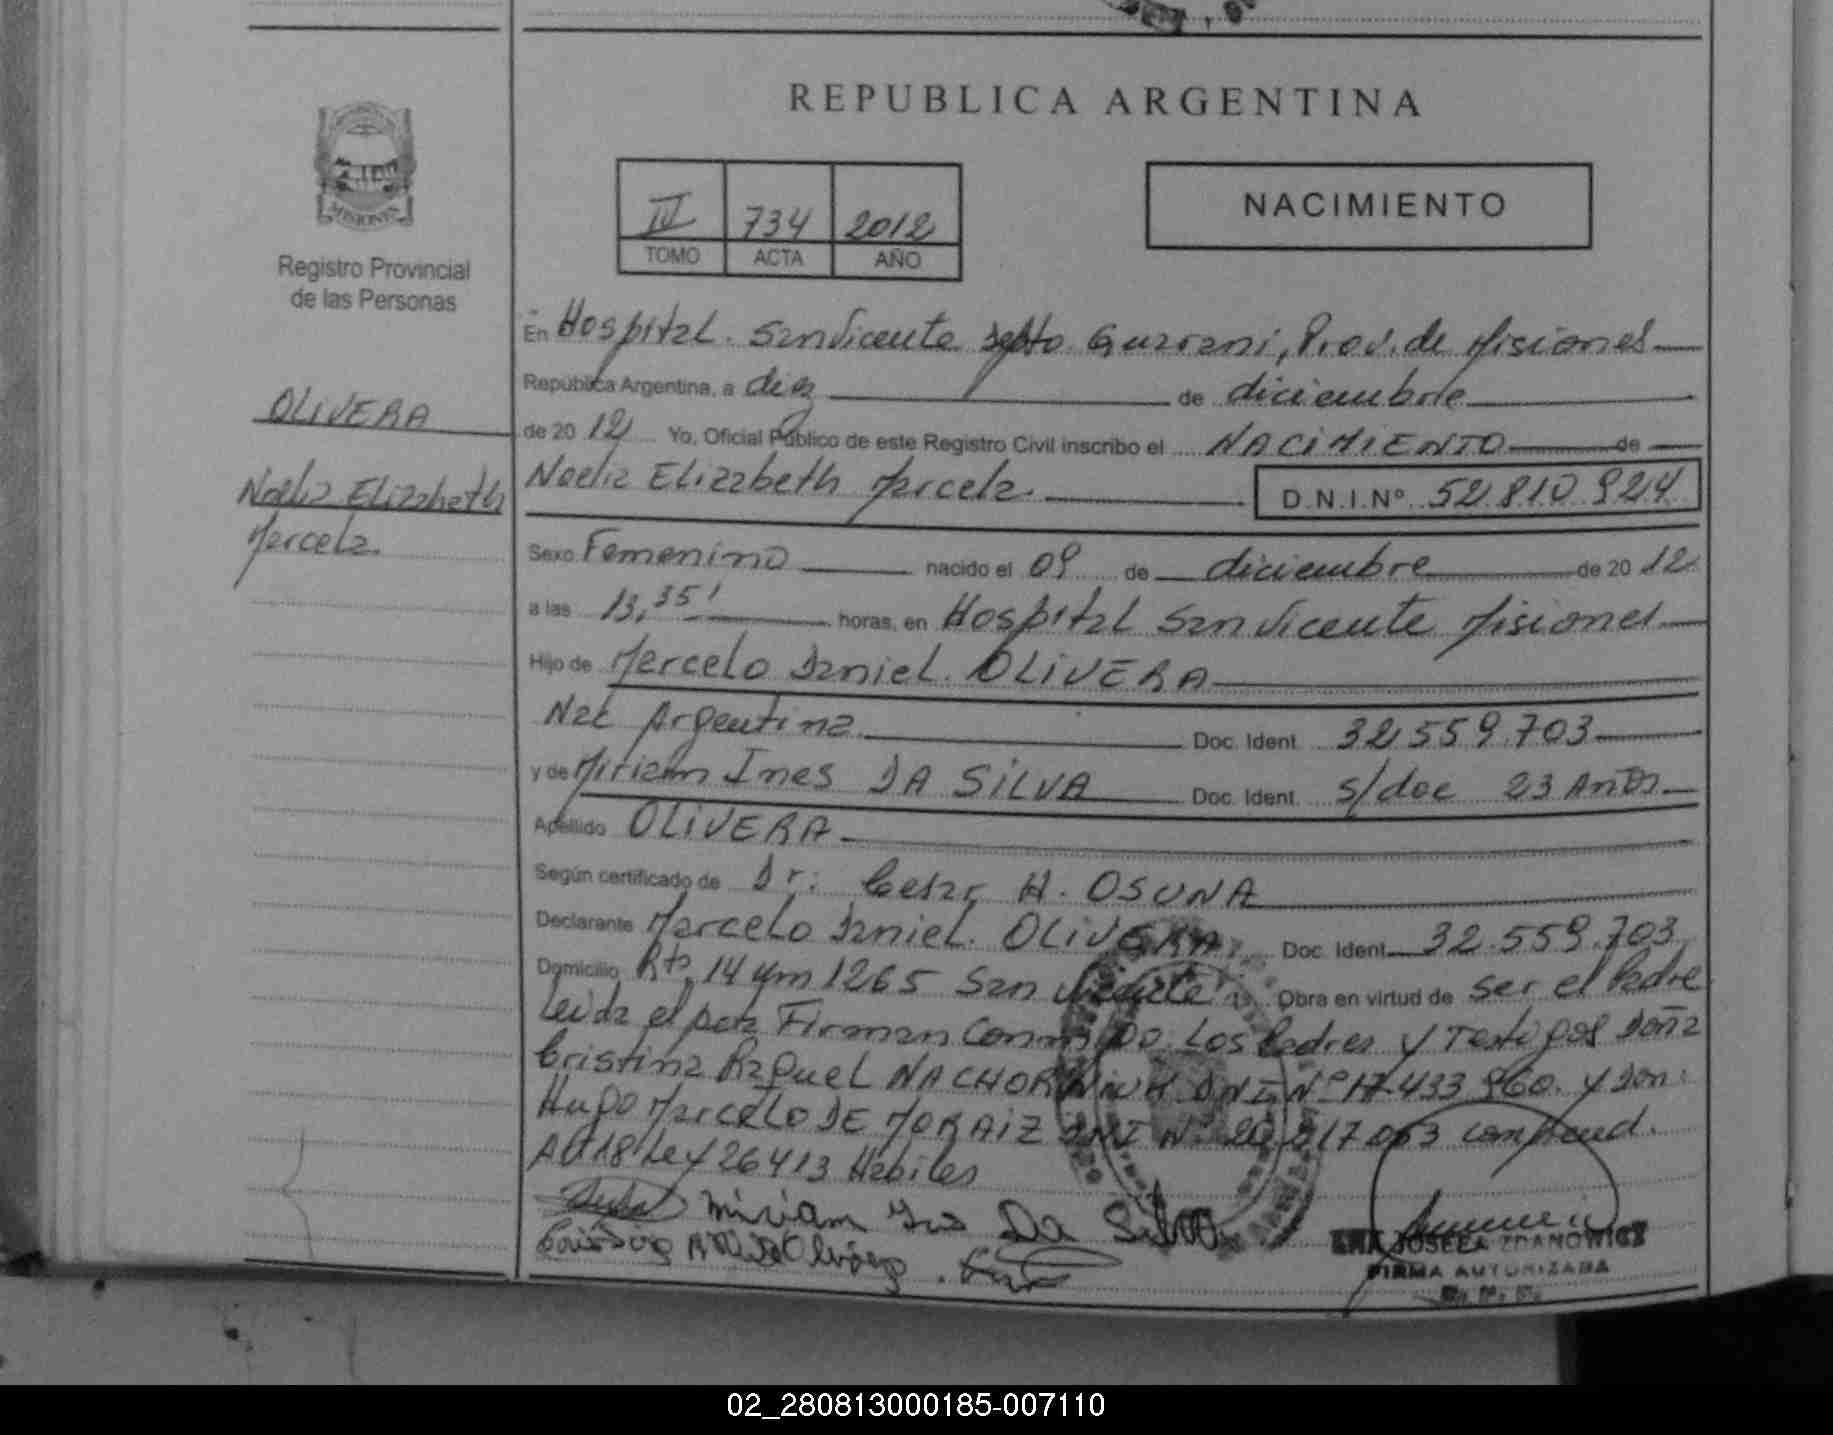 REPUBLICA ARGENTINA
MISIONES
Registro Provincial
de las Personas
IV 734 2012
TOMO ACTA AÑO
NACIMIENTO
En Hospital San Vicente Depto Guarani, Prov. de Misiones
República Argentina, a diez de diciembre
de 2012 Yo, Oficial Público de este Registro Civil inscribo el NACIMIENTO de
OLIVERA
Noelia Elizabeth
Marcela
Noelia Elizabeth Marcela D.N.I.Nº 52.810.924
Sexo Femenino nacido el 09 de diciembre de 2012
a las 13,35' horas, en Hospital San Vicente Misiones
Hijo de Marcelo Daniel OLIVERA
Nat Argentina Doc. Ident. 32.559.703
y de Miriam Ines DA SILVA Doc. Ident. s/doc 23 Años
Apellido OLIVERA
Según certificado de Dr: Cesar H. OSUNA
Declarante Marcelo Daniel OLIVERA Doc. Ident. 32.559.703
Domicilio Rta 14 Km 1265 San Vicente Obra en virtud de ser el Padre
Leida el acta Firman Conmigo Los Padres y Testigos Doña
Cristina Raquel DNI Nº 17.433.960. y Don:
Hugo Marcelo DE MORAIZ DNI Nº comprend.
Art 18 Ley 26413 Habiles
Miriam Ines Da Silva
JOSEFA ZDANOWICZ
FIRMA AUTORIZADA
02_280813000185-007110